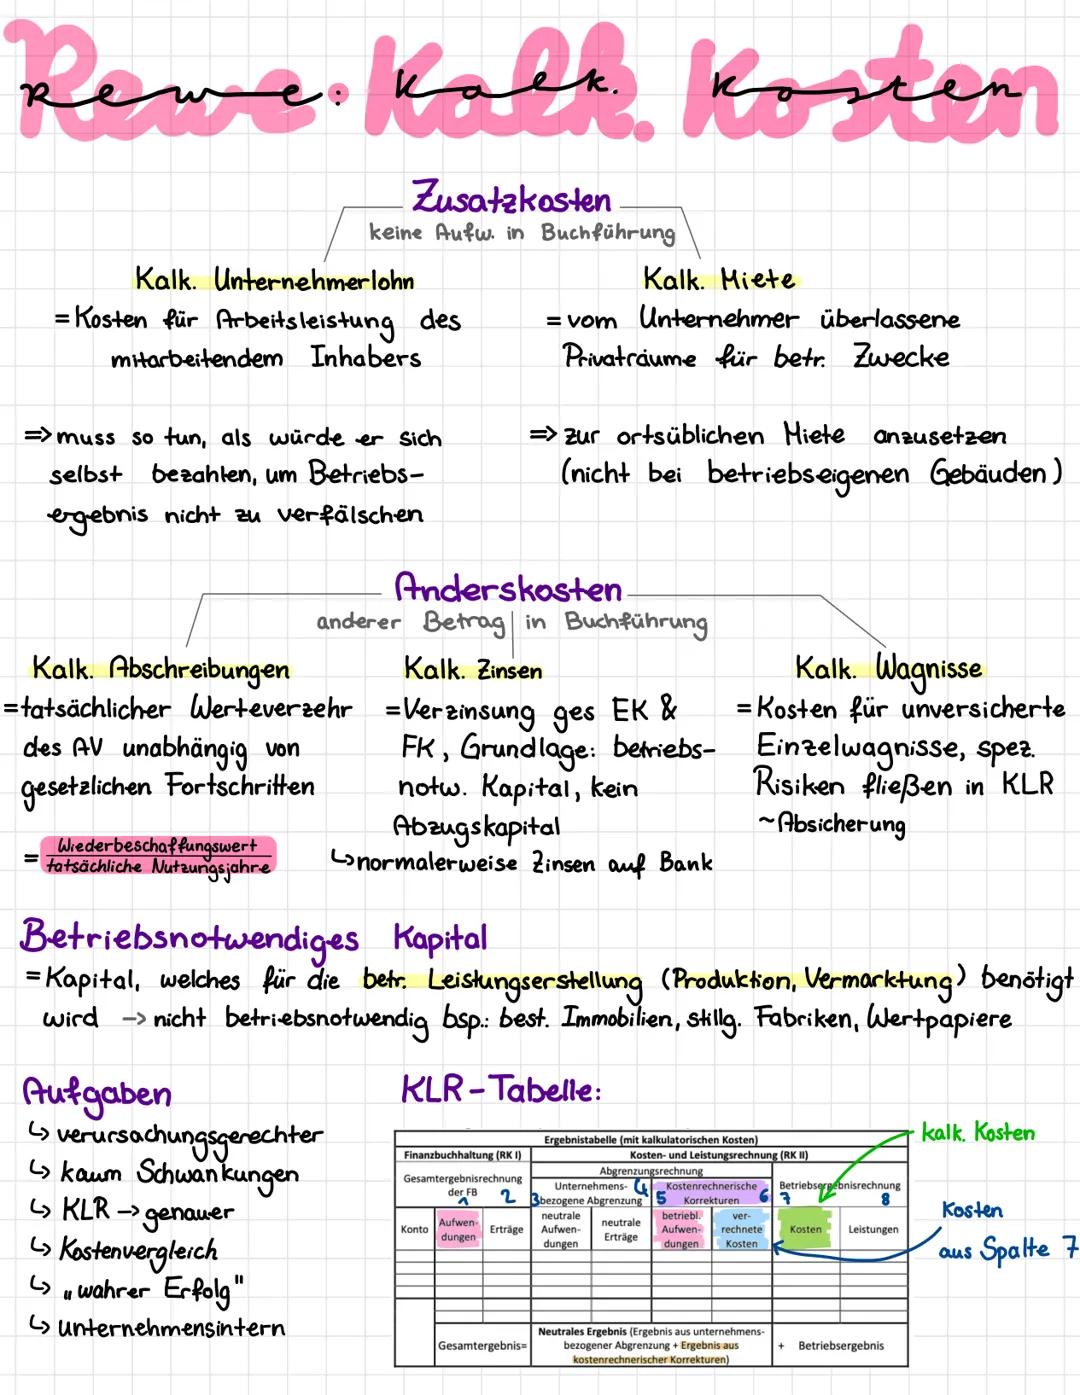 Rewe: Kalk. Kosten
Zusatzkosten
keine Aufw. in Buchführung
Kalk. Unternehmerlohn
= Kosten für Arbeitsleistung des
mitarbeitendem Inhabers
=> muss so tun, als würde er sich
selbst bezahlen, um Betriebs-
ergebnis nicht zu verfälschen
Kalk. Miete
= vom Unternehmer überlassene
Privaträume für betr. Zwecke
=> zur ortsüblichen Miete anzusetzen
(nicht bei betriebseigenen Gebäuden)
Anderskosten
anderer Betrag in Buchführung
Kalk. Abschreibungen
= tatsächlicher Werteverzehr
des AV unabhängig von
gesetzlichen Fortschritten
= Wiederbeschaffungswert
tatsächliche Nutzungsjahre
Kalk. Zinsen
= Verzinsung ges EK &
FK, Grundlage: betriebs-
notw. Kapital, kein
Abzugskapital
↳ normalerweise Zinsen auf Bank
Kalk. Wagnisse
= Kosten für unversicherte
Einzelwagnisse, spez.
Risiken fließen in KLR
~ Absicherung
Betriebsnotwendiges Kapital
= Kapital, welches für die betr. Leistungserstellung (Produktion, Vermarktung) benötigt
wird -> nicht betriebsnotwendig bsp.: best. Immobilien, stillg. Fabriken, Wertpapiere
Aufgaben
↳ verursachungsgerechter
↳ kaum Schwankungen
↳ KLR -> genauer
↳ Kostenvergleich
↳ „wahrer Erfolg"
↳ unternehmensintern
KLR-Tabelle:
Ergebnistabelle (mit kalkulatorischen Kosten)
Finanzbuchhaltung (RK I)
Kosten- und Leistungsrechnung (RK II)
Gesamtergebnisrechnung
der FB
1 2
Abgrenzungsrechnung
Unternehmens-
bezogene Abgrenzung
3 4
Kostenrechnerische
Korrekturen
5 6
Betriebsergebnisrechnung
7 8
Konto
Aufwen-
dungen
Erträge
neutrale
Aufwen-
dungen
neutrale
Erträge
betriebl.
Aufwen-
dungen
ver-
rechnete
Kosten
Kosten
Leistungen
Gesamtergebnis=
Neutrales Ergebnis (Ergebnis aus unternehmens-
bezogener Abgrenzung + Ergebnis aus
kostenrechnerischer Korrekturen)
+ Betriebsergebnis
kalk. Kosten
Kosten
aus Spalte 7